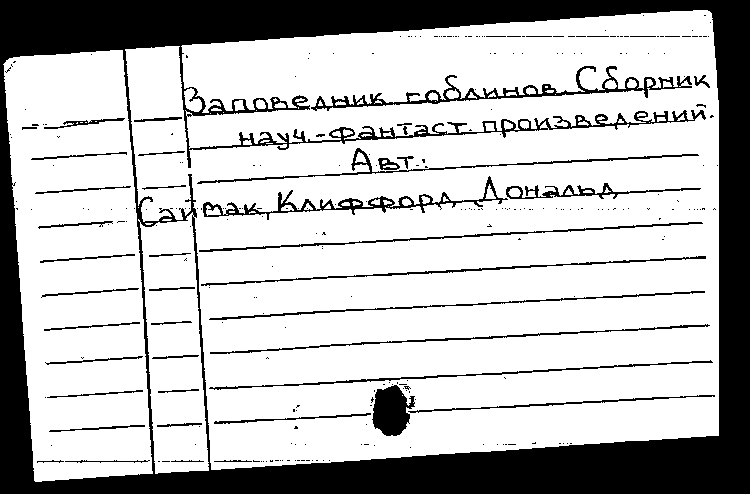 Заповедник гоблинов. Сборник
науч.-фантаст. произведений.
Авт.:
Саймак, Клиффорд Дональд